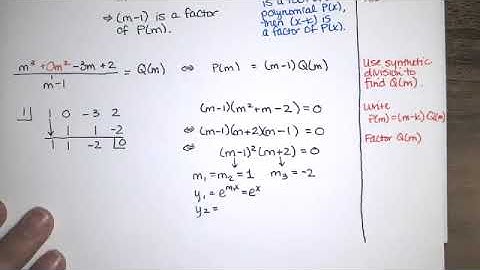 ⇒ (m-1) is a factor
of P(m).
is a root of
polynomial P(x),
then (x-k) is
a factor of P(x).
m³ + 0m² - 3m + 2 / m-1 = Q(m) ⇔ P(m) = (m-1)Q(m)
1| 1 0 -3 2
↓ 1 1 -2
1 1 -2 |0
(m-1)(m²+m-2) = 0
⇔ (m-1)(m+2)(m-1) = 0
⇔ (m-1)²(m+2) = 0
m₁ = m₂ = 1 m₃ = -2
y₁ = e^(m₁x) = e^x
y₂ =
Use synthetic
division to
find Q(m).
Write
P(m) = (m-k)Q(m)
Factor Q(m)